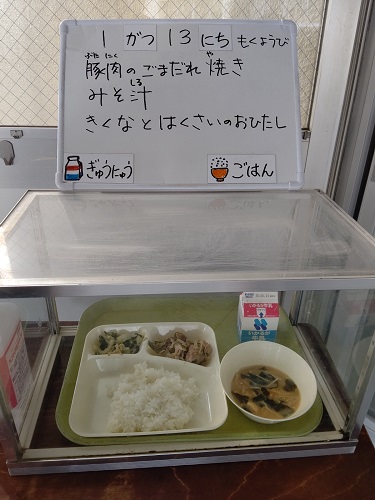 1がつ13にちもくようび
ぶたにく や
豚肉のごまだれ焼き
しる
みそ汁
きくなとはくさいのおひたし
ぎゅうにゅう ごはん
いかるが牛乳